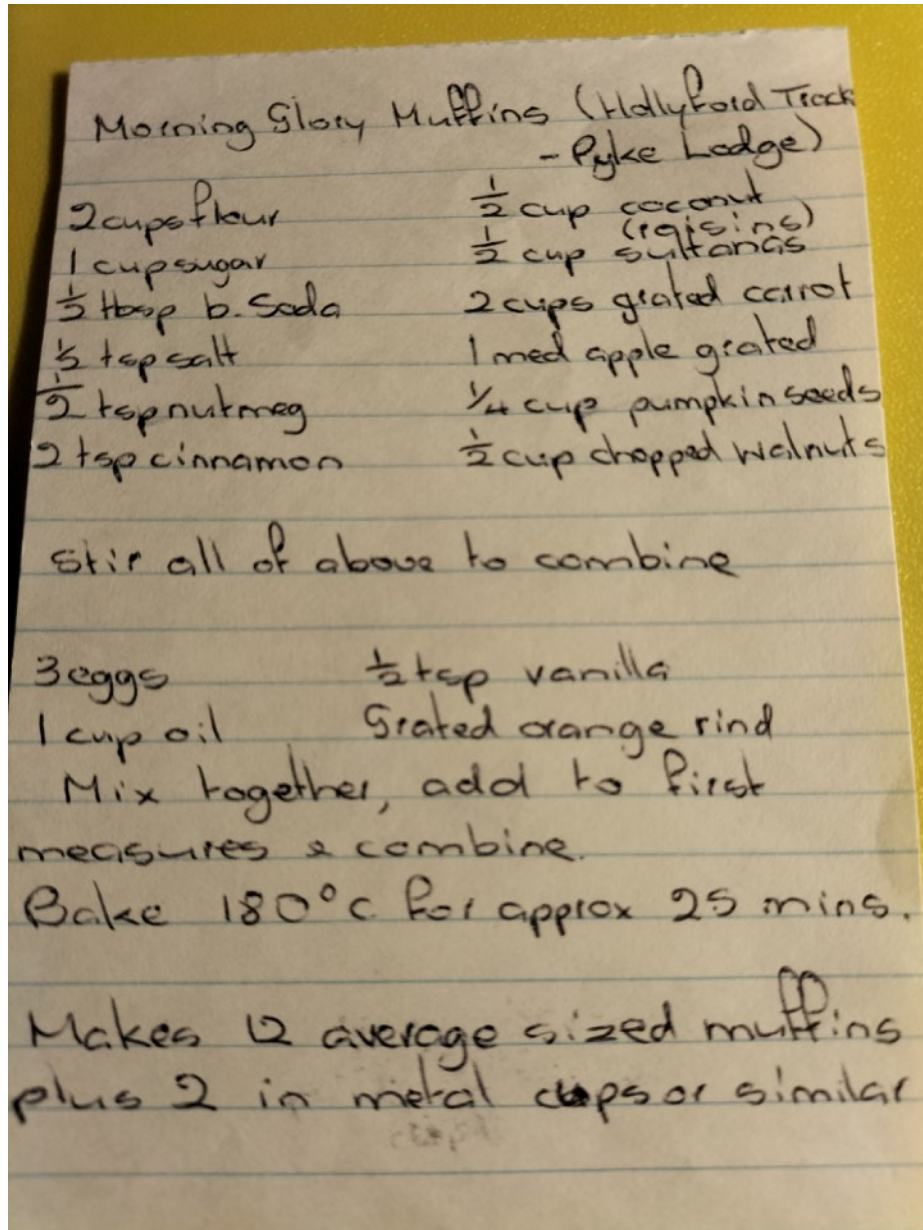 Morning Glory Muffins (Hollyford Track
- Pyke Lodge)
2 cups flour
1 cup sugar
½ tbsp b. soda
½ tsp salt
½ tsp nutmeg
2 tsp cinnamon
½ cup coconut
(raisins)
½ cup sultanas
2 cups grated carrot
1 med apple grated
¼ cup pumpkin seeds
½ cup chopped walnuts
Stir all of above to combine
3 eggs
1 cup oil
½ tsp vanilla
Grated orange rind
Mix together, add to first
measures & combine.
Bake 180°c for approx 25 mins.
Makes 12 average sized muffins
plus 2 in metal cups or similar